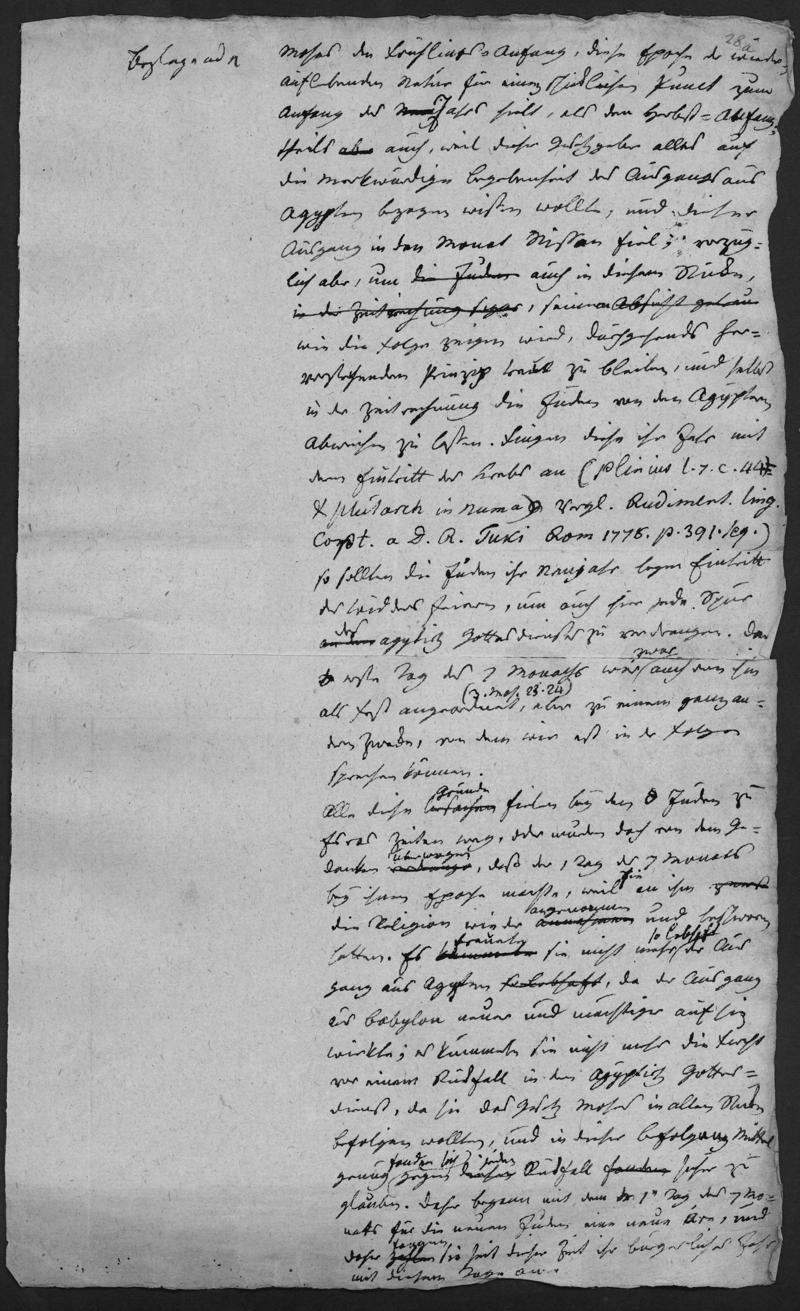 28a
Beylage ad n
Moses den Frühlings-Anfang, diese Epoche der wieder-
auflebenden Natur für einen schicklichen Punct zum
Anfang des Jahrs hielt, als den Herbst-Anfang,
theils aber auch, weil dieser Gesetzgeber alles auf
die merkwürdige Begebenheit des Ausgangs aus
Agypten bezogen wissen wollte, und dieser
Ausgang in den Monat Nissan fiel; vorzüg-
lich aber, um die Juden auch in diesem Stücke,
in der Zeitrechnung, seinem Absicht
wie die Folge zeigen wird, durchgehends her-
vorstehenden Prinzip treu zu bleiben, und selbst
in der Zeitrechnung die Juden von den Agyptern
abweichen zu lassen. Fingen diese ihr Jahr mit
dem Eintritt des Krebs an (Plinius l. 7. c. 44
& Plutarch in Numa) vergl. Rudiment. ling.
Copt. a D. R. Tuki Rom 1778. p. 391. seq.)
so sollten die Juden ihr Neujahr beym Eintritt
des Widders feiern, um auch hier jede Spur
des agyptisch Gottesdienstes zu verdrengen. Der
zwar
erste Tag des 7 Monaths war auch von ihm
(3. Mos. 23. 24)
als Fest angeordnet, aber zu einem ganz an-
dern Zwecke, von dem wir erst in der Folge
sprechen können.
Gründe
Alle diese Ursachen fielen bey den Juden zu
Esras Zeiten weg, oder wurden doch von dem Ge-
überwogen
danken, daß der 1 Tag des 7 Monats
sie
bey ihnen Epoche machte, weil an ihm
angenommen
die Religion wieder annahmen und beschworen
so lebhaft
hatten. Es sie nicht mehr der Aus
gang aus Agypten so lebhaft, da der Ausgang
aus Babylon neuer und mächtiger auf sie
wirkte; es kümmerte sie nicht mehr die Furcht
vor einem Rückfall in den Agyptisch Gottes-
dienst, da sie das Gesetz Moses in allen Stücken
befolgen wollten, und in dieser Befolgung Mittel
genug gegen diesen Rückfall fanden sicher zu
glauben. Daher begann mit dem 1n Tag des 7 Mo-
nats für die neuen Juden eine neue Ära, und
fangen
daher zählen sie seit dieser Zeit ihr bürgerliches Jahr
mit diesem Tage an.